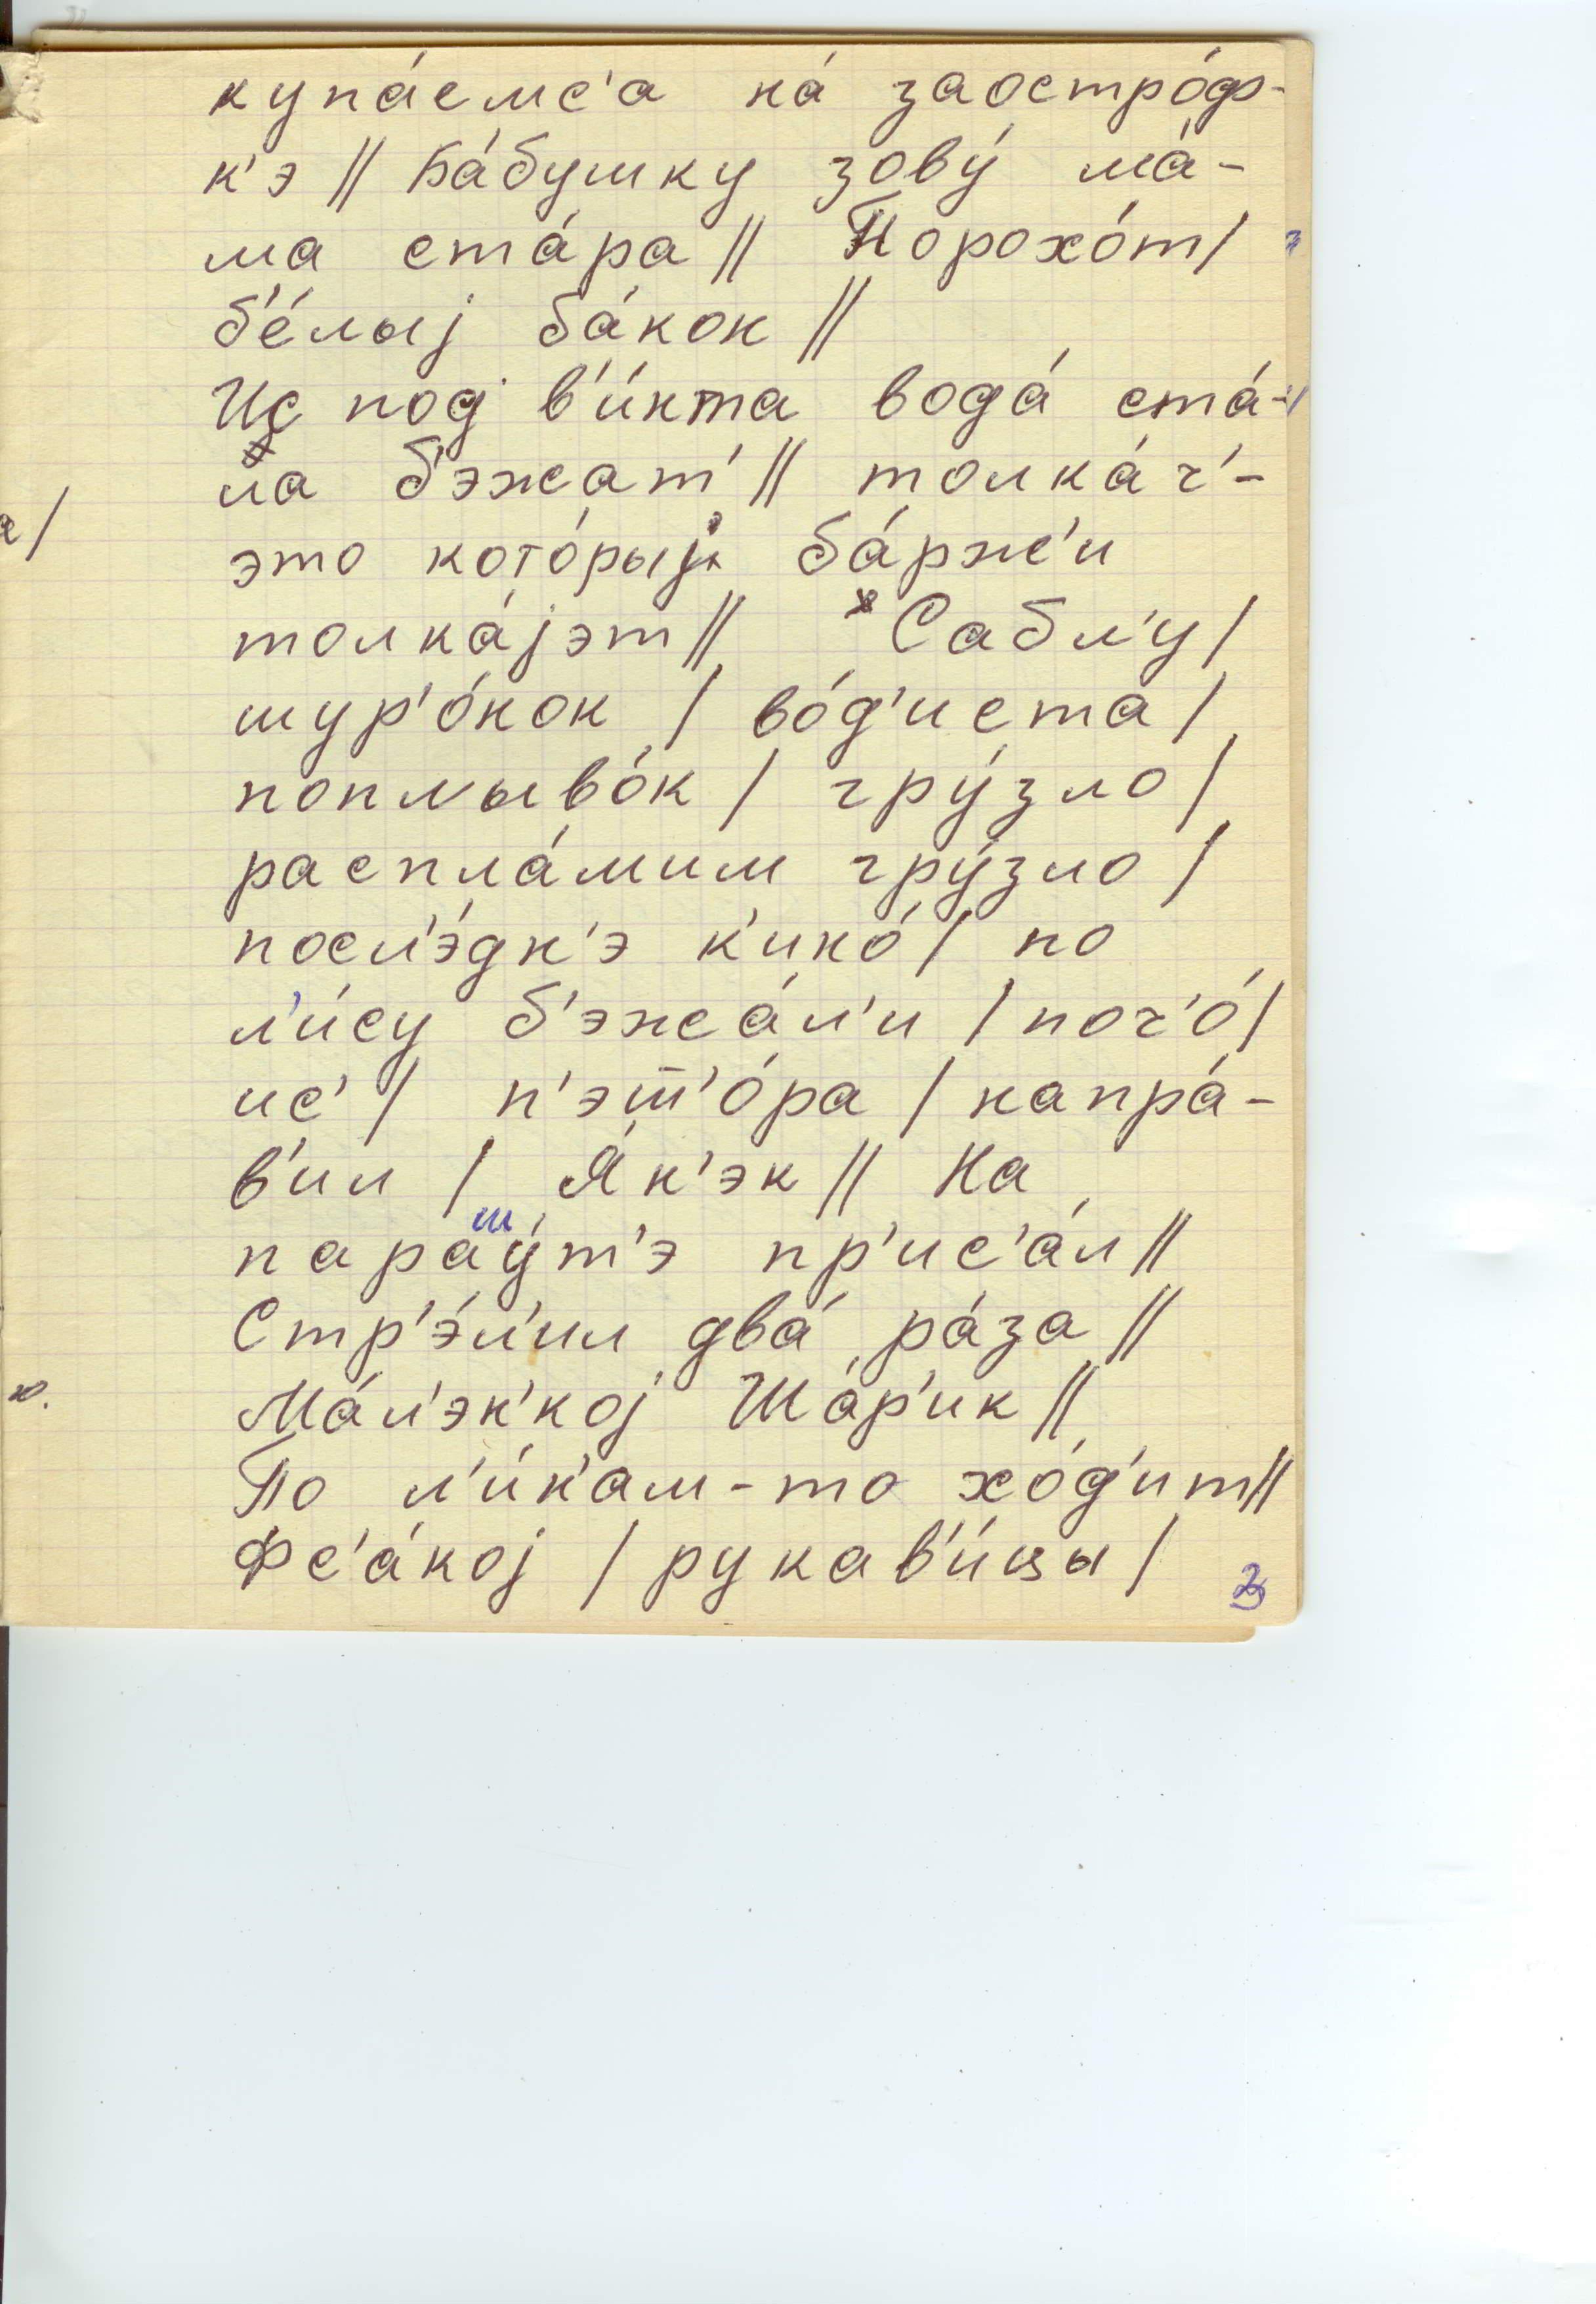 купа́емс'а на́ заостро́ф-
к'э // Ба́бушку зову́ ма́-
ма ста́ра // Порохо́т /
б'е́лыј ба́кон //
Ис под в'и́нта вода́ ста́-
ла б'эжат' // толка́ч'-
это кото́рыј ба́рж'и
толка́јэт // Сабл'у /
шур'о́нок / во́д'иста /
поплыво́к / гру́зло /
распла́мим гру́зло /
посл'э́дн'э к'ино́ / по
л'и́су б'эжа́л'и / поч'о́ /
ис' / п'эт'о́ра / напра́-
в'ил / Я́н'эк // На
парашу́т'э пр'ис'а́л //
Стр'э́л'ил два́ ра́за //
Ма́л'эн'кој Ша́р'ик //
По л'и́н'ам-то хо́д'ит //
Фс'а́кој / рукав'и́цы /
3